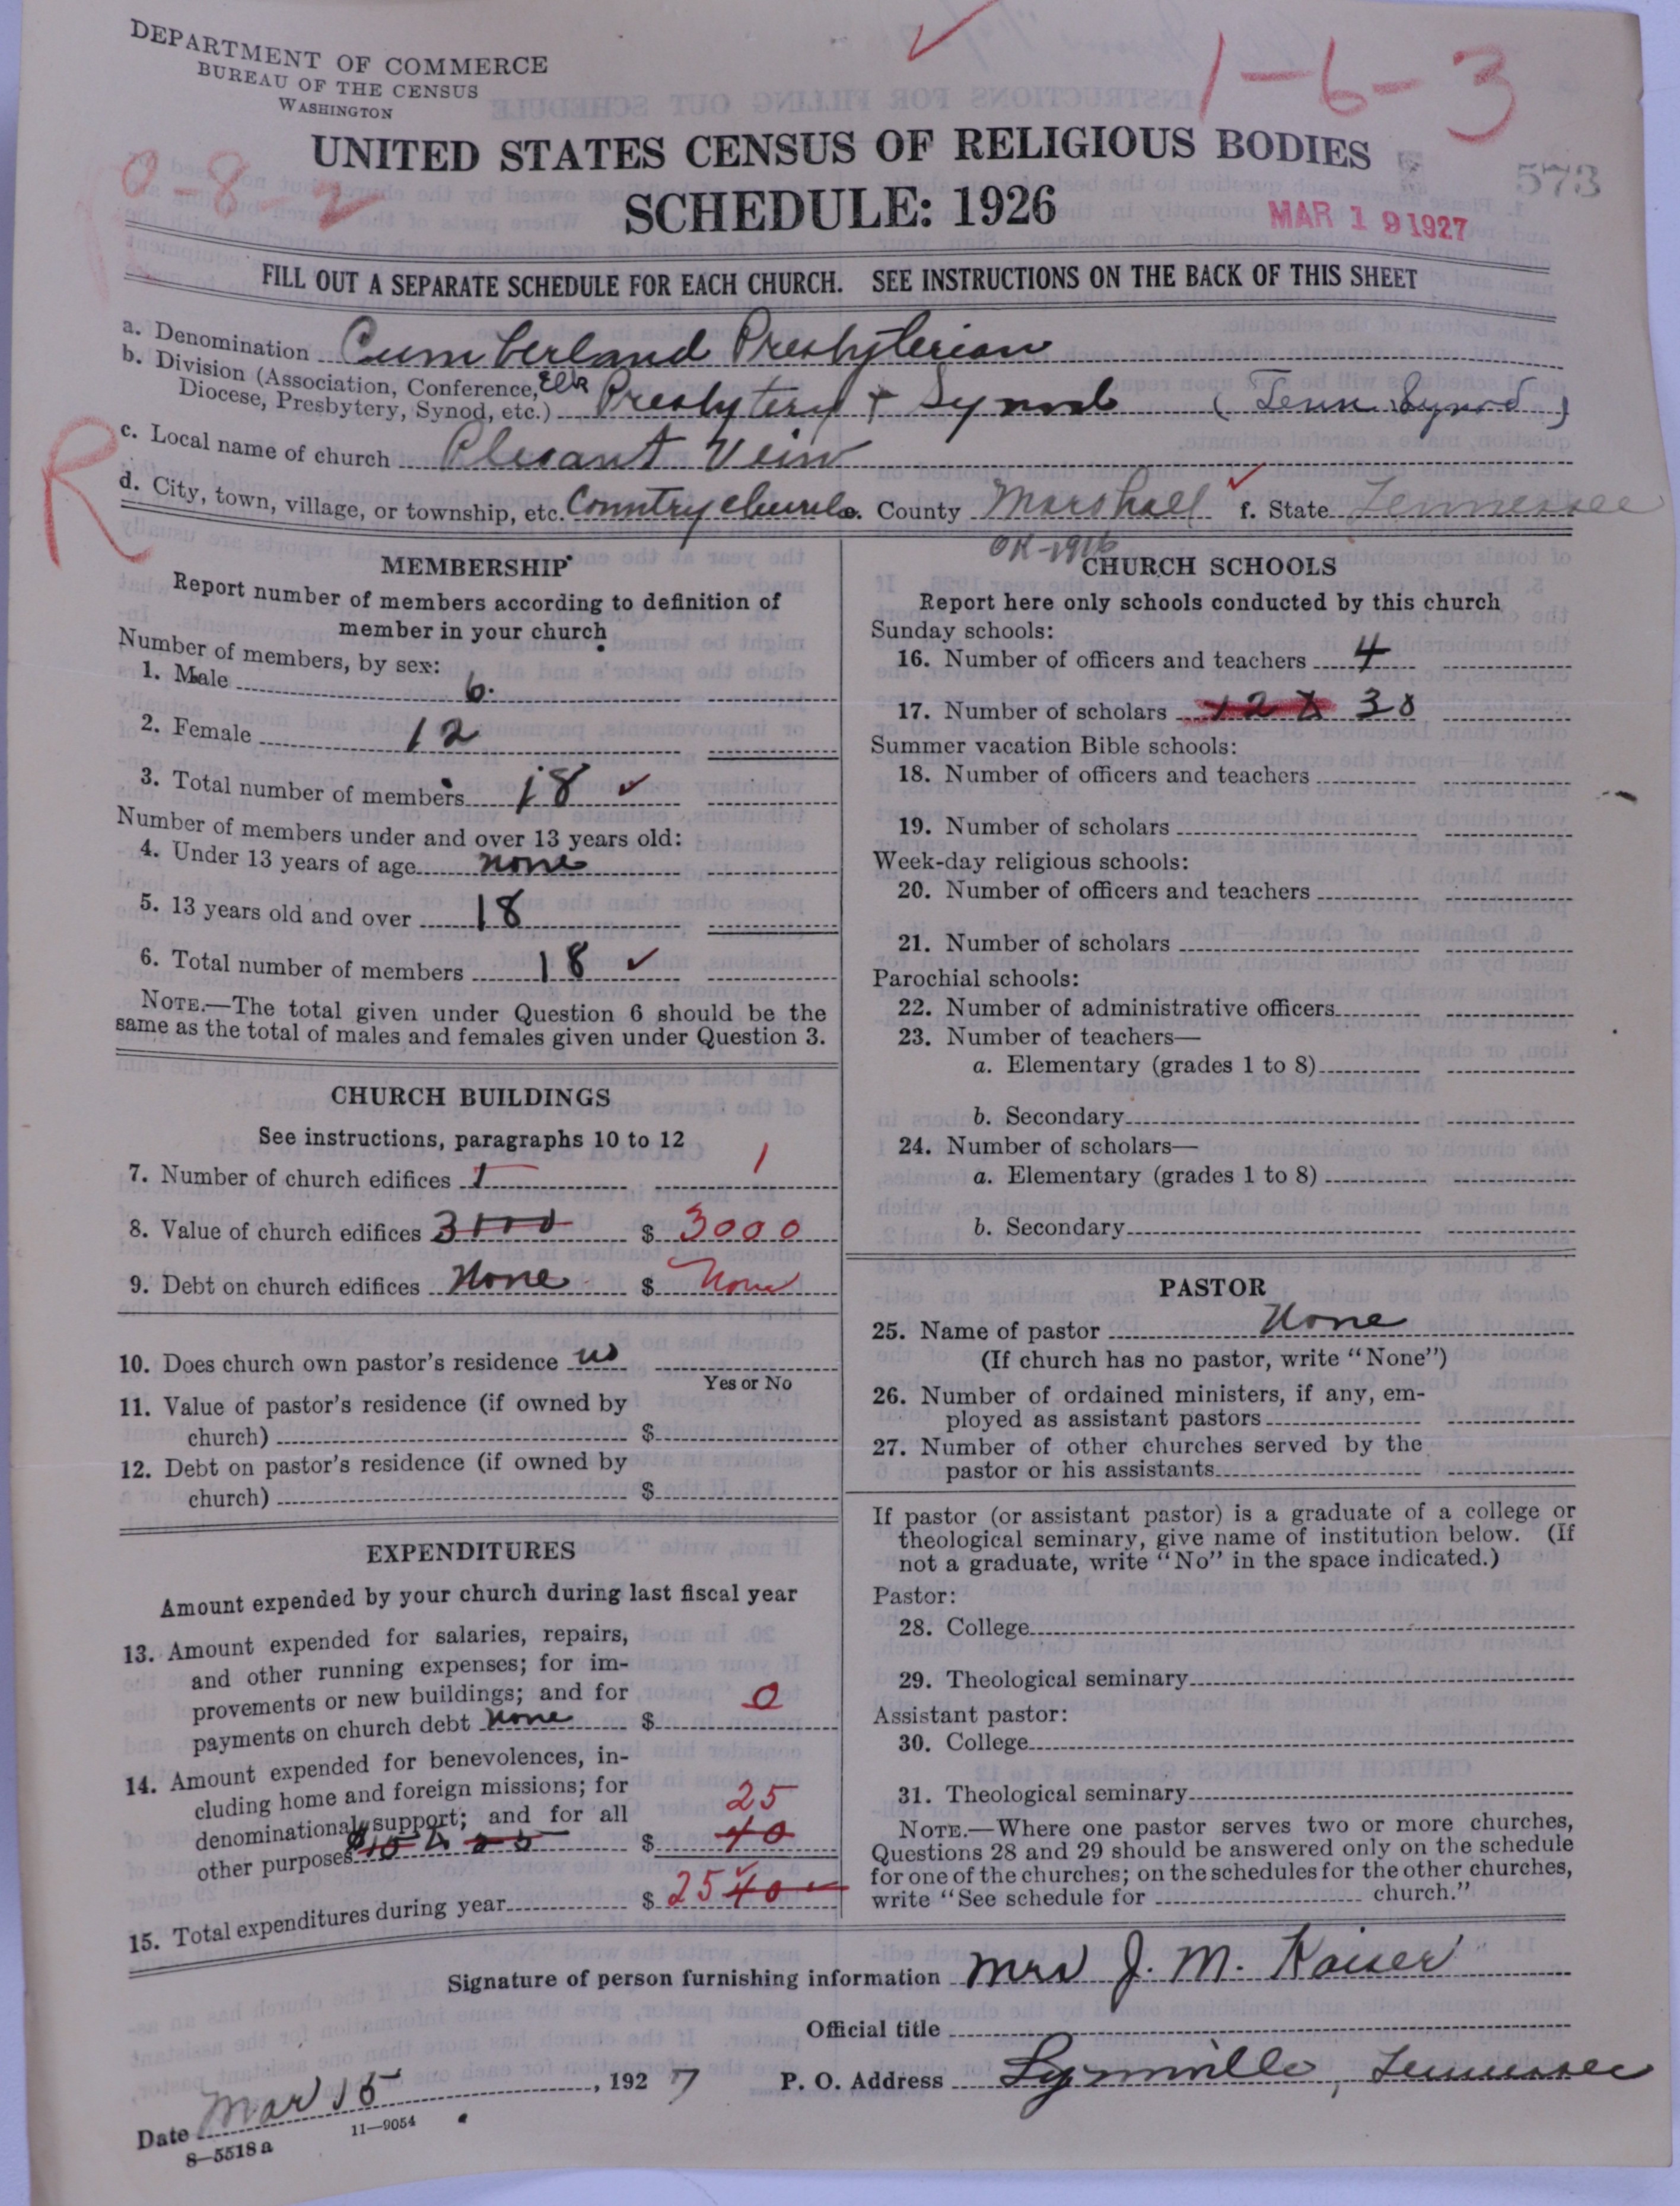 DEPARTMENT OF COMMERCE
BUREAU OF THE CENSUS
WASHINGTON
1-6-3
UNITED STATES CENSUS OF RELIGIOUS BODIES
0-8-2
SCHEDULE: 1926
573
MAR 19 1927
FILL OUT A SEPARATE SCHEDULE FOR EACH CHURCH. SEE INSTRUCTIONS ON THE BACK OF THIS SHEET
a. Denomination Cumberland Presbyterian
b. Division (Association, Conference, Diocese, Presbytery, Synod, etc.) Elk Presbytery + Synod (Tenn Synod)
c. Local name of church Plesant Veiw
R
d. City, town, village, or township, etc. Country church e. County Marshall f. State Tennessee
OK-1916
MEMBERSHIP
Report number of members according to definition of
member in your church
Number of members, by sex:
1. Male 6.
2. Female 12
3. Total number of members 18
Number of members under and over 13 years old:
4. Under 13 years of age none
5. 13 years old and over 18
6. Total number of members 18
NOTE.—The total given under Question 6 should be the
same as the total of males and females given under Question 3.
CHURCH BUILDINGS
See instructions, paragraphs 10 to 12
7. Number of church edifices 1 1
8. Value of church edifices 3000 $ 3000
9. Debt on church edifices None $ None
10. Does church own pastor's residence no
Yes or No
11. Value of pastor's residence (if owned by
church) $
12. Debt on pastor's residence (if owned by
church) $
EXPENDITURES
Amount expended by your church during last fiscal year
13. Amount expended for salaries, repairs,
and other running expenses; for im-
provements or new buildings; and for
payments on church debt None $ 0
14. Amount expended for benevolences, in-
cluding home and foreign missions; for
denominational support; and for all 25
other purposes $ 40
15. Total expenditures during year $ 25 40
CHURCH SCHOOLS
Report here only schools conducted by this church
Sunday schools:
16. Number of officers and teachers 4
17. Number of scholars 38
Summer vacation Bible schools:
18. Number of officers and teachers
19. Number of scholars
Week-day religious schools:
20. Number of officers and teachers
21. Number of scholars
Parochial schools:
22. Number of administrative officers
23. Number of teachers—
a. Elementary (grades 1 to 8)
b. Secondary
24. Number of scholars—
a. Elementary (grades 1 to 8)
b. Secondary
PASTOR
25. Name of pastor None
(If church has no pastor, write "None")
26. Number of ordained ministers, if any, em-
ployed as assistant pastors
27. Number of other churches served by the
pastor or his assistants
If pastor (or assistant pastor) is a graduate of a college or
theological seminary, give name of institution below. (If
not a graduate, write "No" in the space indicated.)
Pastor:
28. College
29. Theological seminary
Assistant pastor:
30. College
31. Theological seminary
NOTE.—Where one pastor serves two or more churches,
Questions 28 and 29 should be answered only on the schedule
for one of the churches; on the schedules for the other churches,
write "See schedule for church."
Signature of person furnishing information Mrs J. M. Kaiser
Official title
Date Mar 15, 1927 P. O. Address Lynnville, Tennessee
8—5518a 11—9054